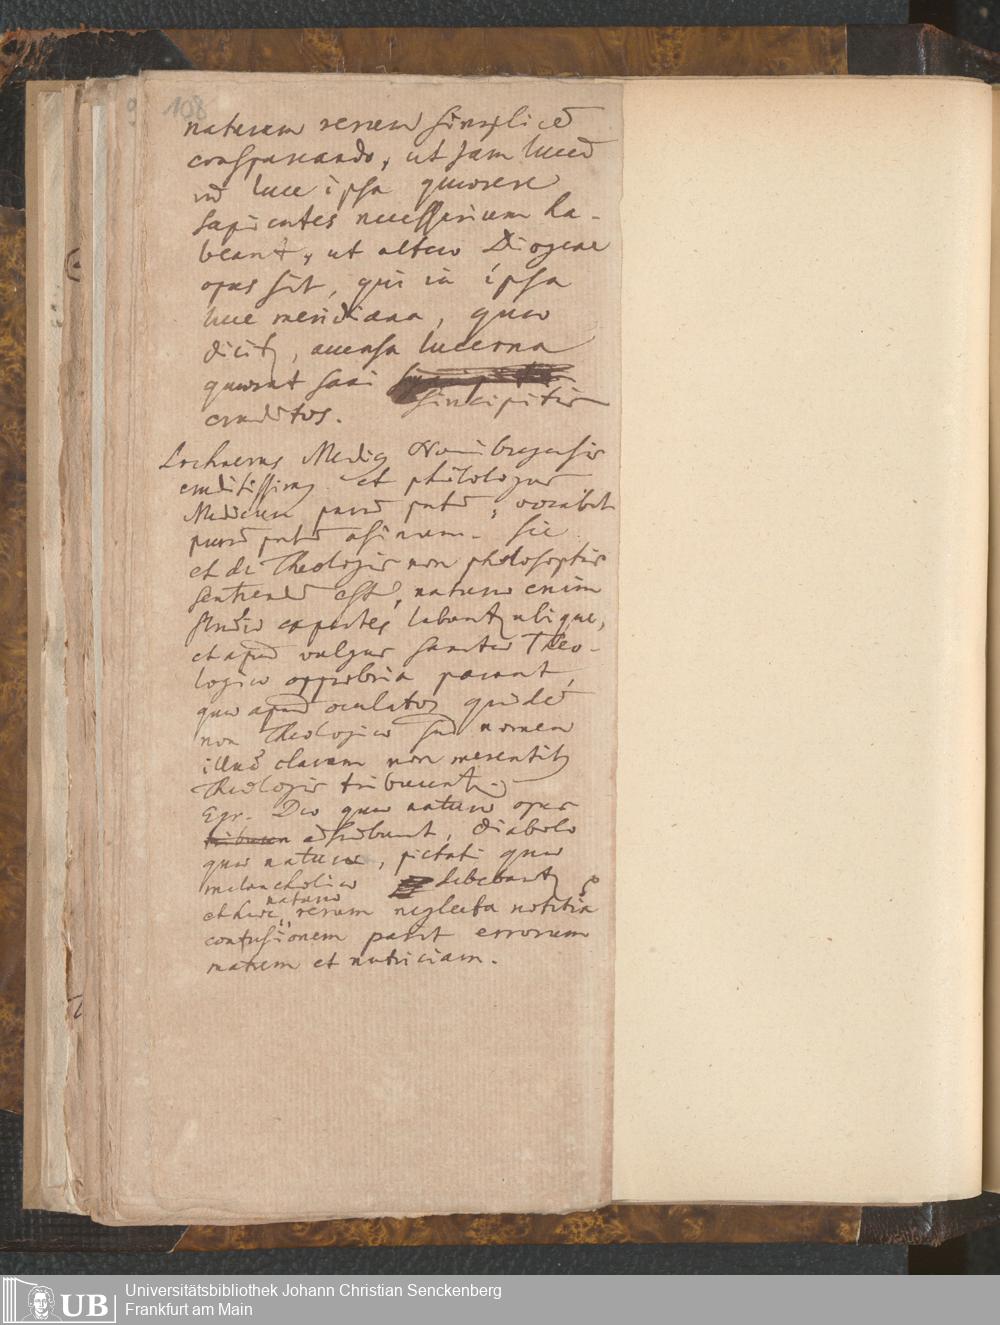 108
naturam rerum simplicem
conspurcando, ut jam lucem
in luce ipsa quaerere
sapientes necessarium ha-
beant, ut altero Diogene
opus sit, qui in ipsa
luce meridiana, quod
dicitur, accensa lucerna
quaerat sani
sincipitis
eruditos.
Lochnerus Medicus Norimbergensis
eruditissimus et philologus
Medicum purum putum, vocabat
purum putum asinum. Sic
et de Theologis non philosophis
sentiendum est, naturae enim
studio expertes labuntur ubique,
et apud vulgus sanctae Theo-
logiae opprobria pariunt,
quae apud oculatos quidem
non Theologiae sed nomen
illud clarum non merentibus
Theologis tribuuntur.
Egr. Deo quae naturae opus
adscribunt, diabolo
quae naturae, pietati quae
melancholiae debebantur
et haec naturae rerum neglecta notitia
confusionem parit errorum
matrem et nutriciam.
UB
Universitätsbibliothek Johann Christian Senckenberg
Frankfurt am Main